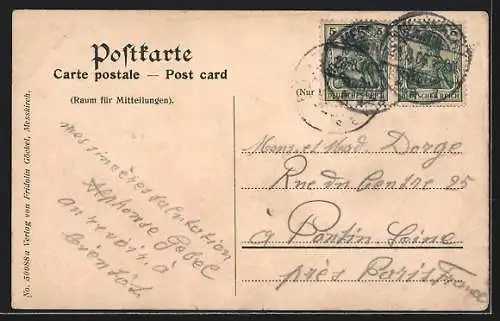 Postkarte
Carte postale — Post card
(Raum für Mitteilungen).
(Nur
5 5
DEUTSCHES REICH
No. 56088a Verlag von Fridolin Göckel, Messkirch.
mes sincères salutation
Alphonse Gobel
au revoir à
bientôt
Mons et Mad Dorge
Rue du Centre 25
à Pantin Seine
près Paris France